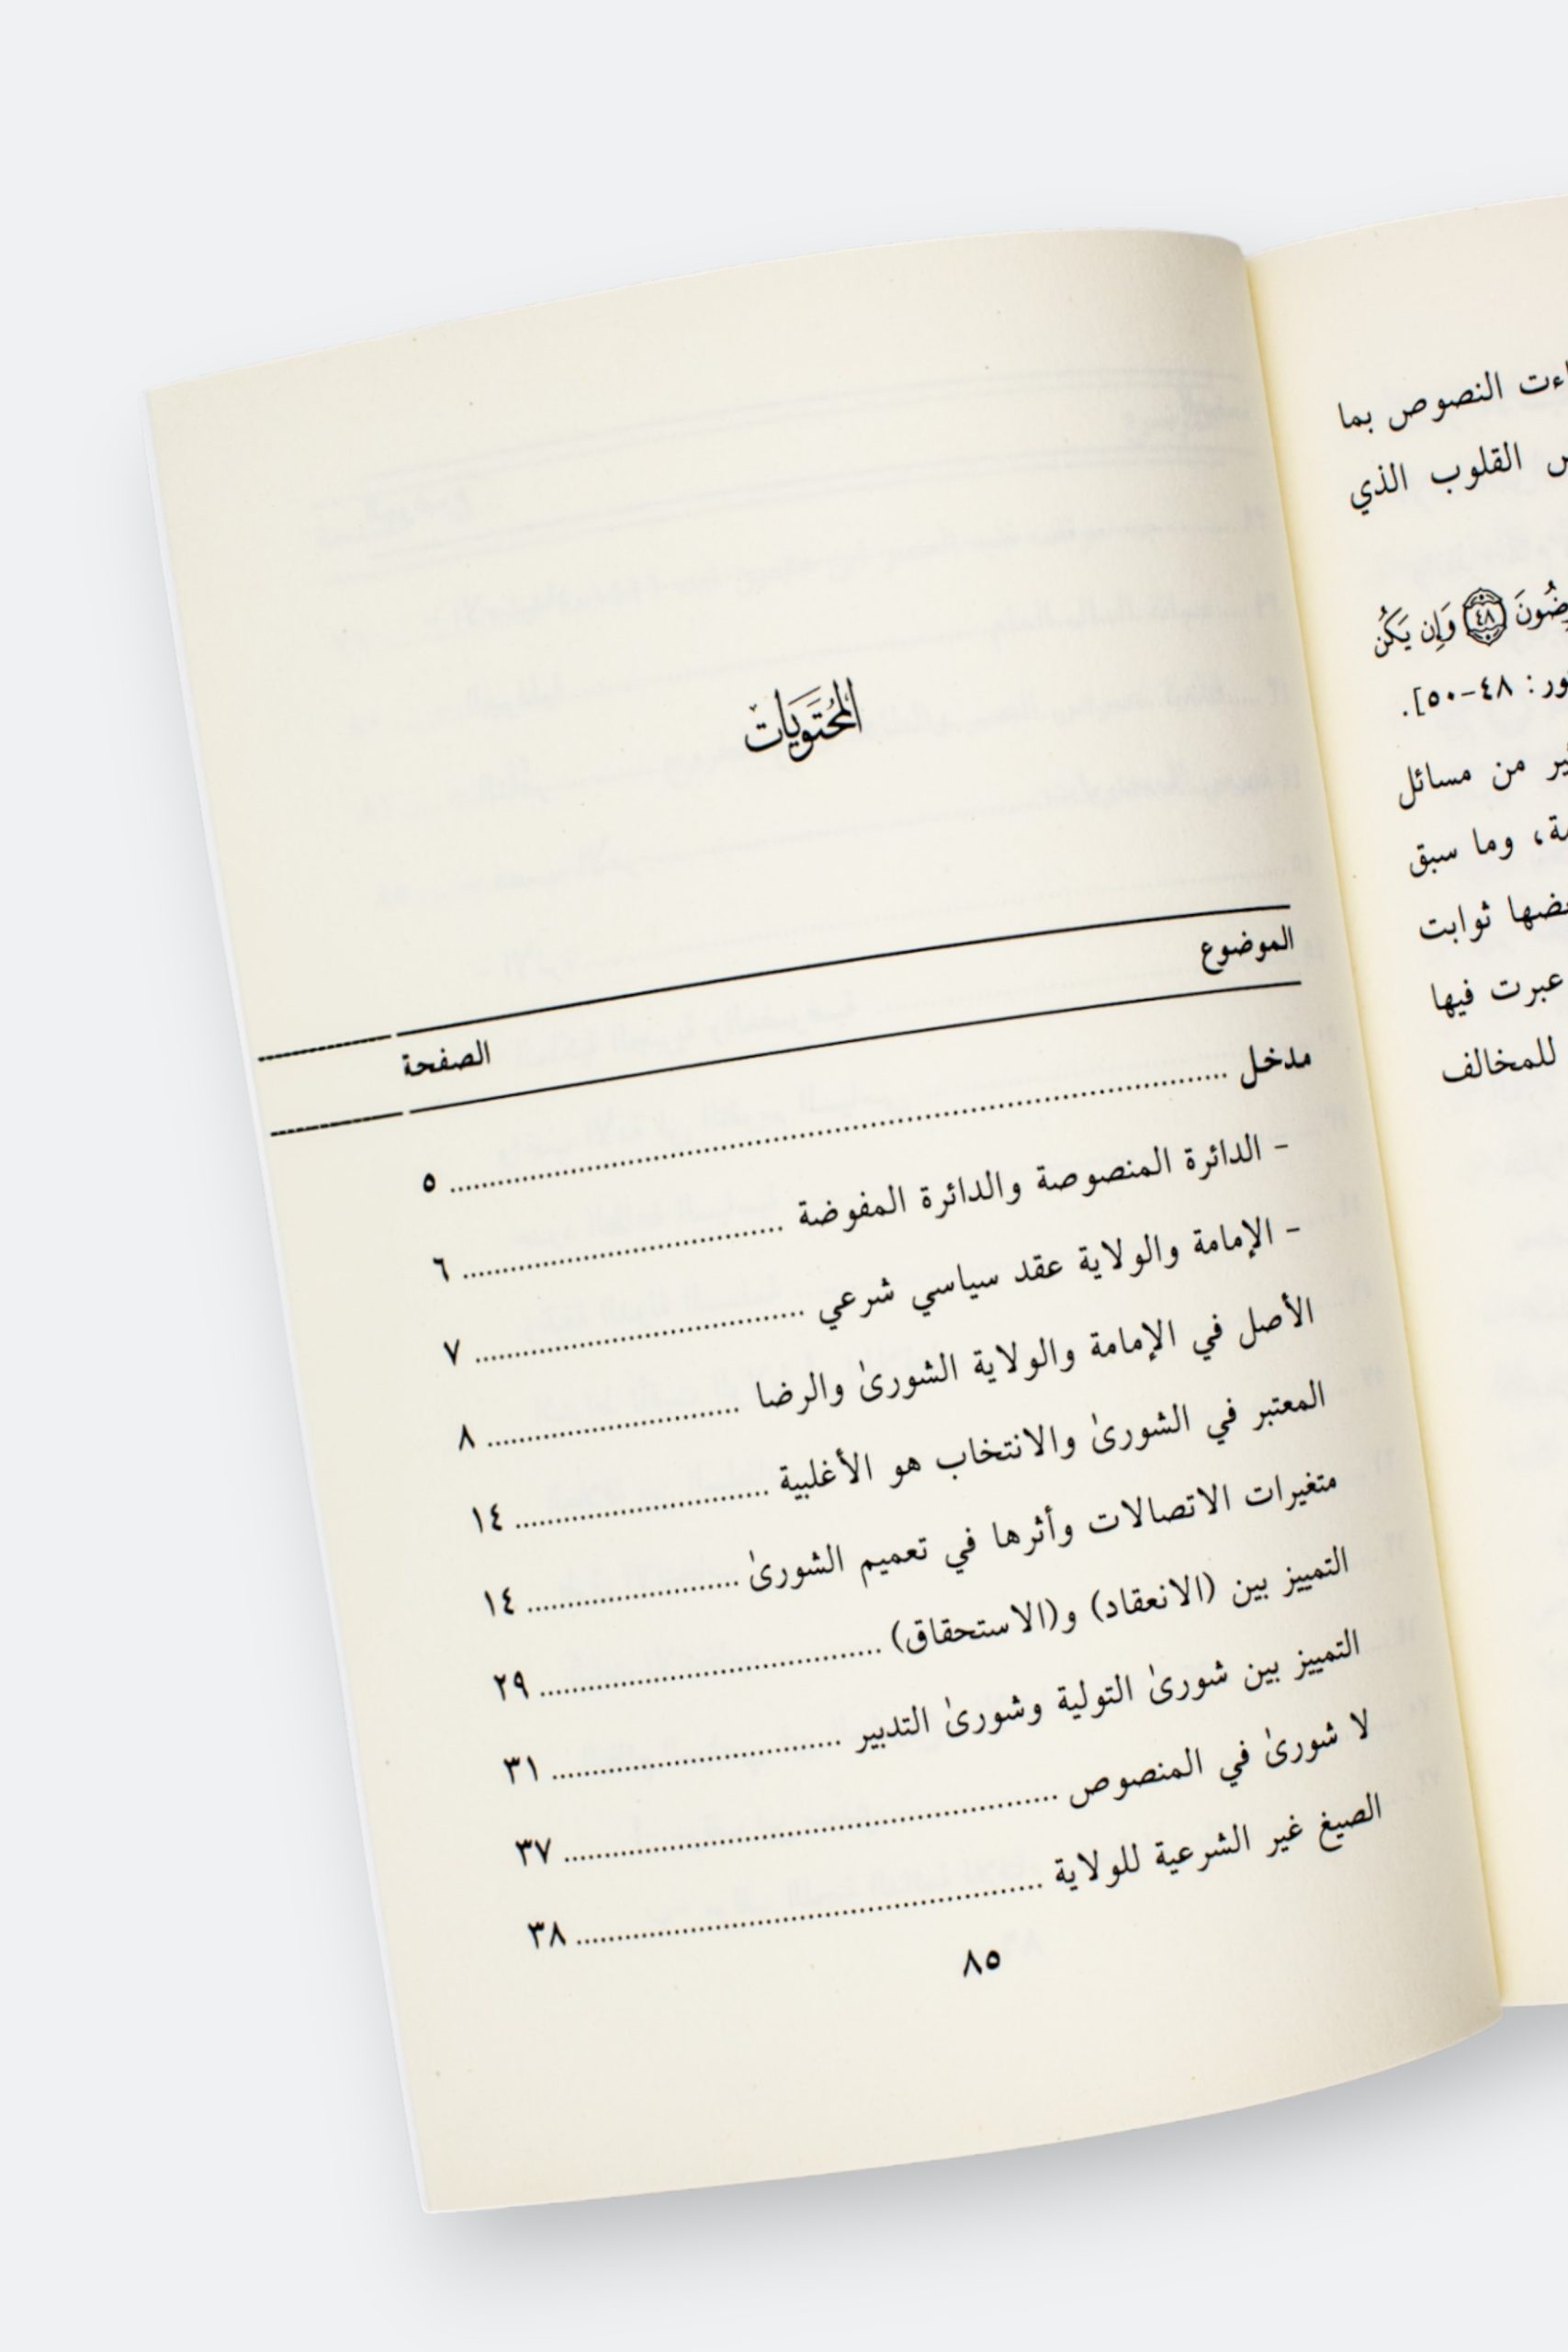 النصوص بما
القلوب الذي
٤٨ وَإِن يَكُن
٤٨-٥٠].
من مسائل
وما سبق
ثوابت
عبرت فيها
للمخالف
المُحتَوَيَات
الموضوع الصفحة
مدخل ........ ٥
- الدائرة المنصوصة والدائرة المفوضة ........ ٦
- الإمامة والولاية عقد سياسي شرعي ........ ٧
الأصل في الإمامة والولاية الشورىٰ والرضا ........ ٨
المعتبر في الشورىٰ والانتخاب هو الأغلبية ........ ١٤
متغيرات الاتصالات وأثرها في تعميم الشورىٰ ........ ١٤
التمييز بين (الانعقاد) و(الاستحقاق) ........ ٢٩
التمييز بين شورىٰ التولية وشورىٰ التدبير ........ ٣١
لا شورىٰ في المنصوص ........ ٣٧
الصيغ غير الشرعية للولاية ........ ٣٨
٨٥